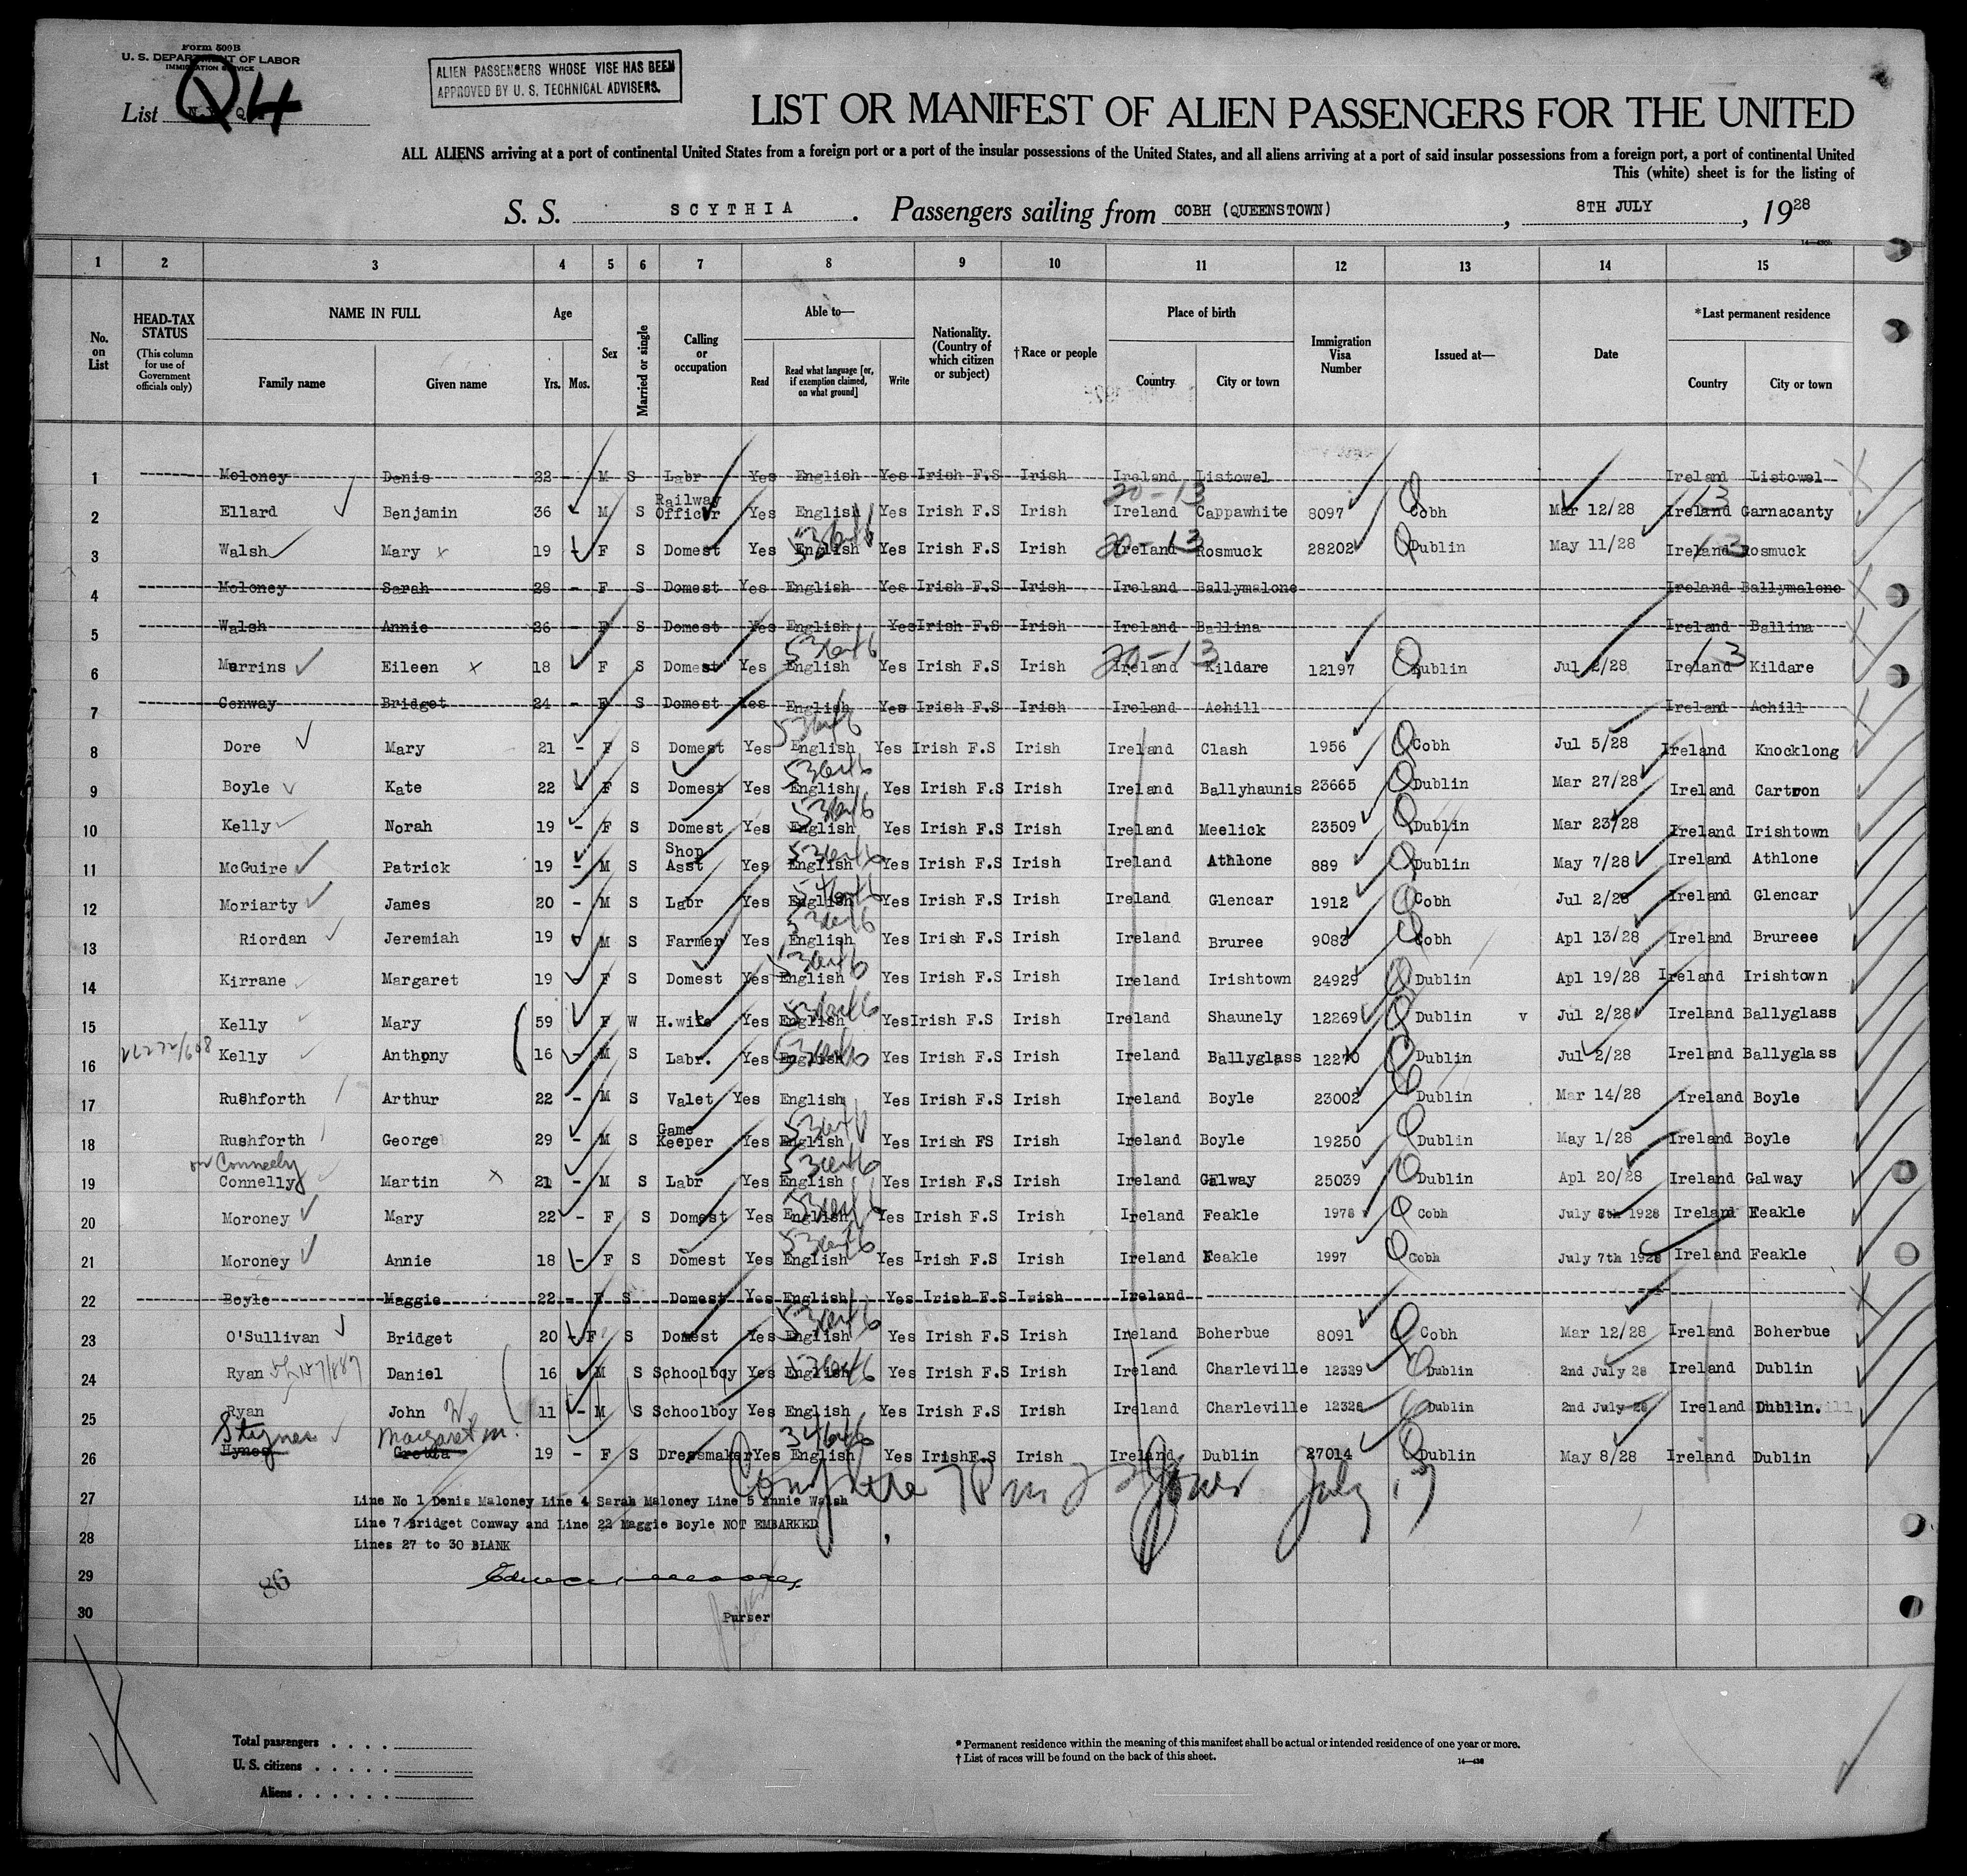 Form 500B
U. S. DEPARTMENT OF LABOR
IMMIGRATION SERVICE
List Q4
ALIEN PASSENGERS WHOSE VISE HAS BEEN
APPROVED BY U. S. TECHNICAL ADVISERS.
LIST OR MANIFEST OF ALIEN PASSENGERS FOR THE UNITED
ALL ALIENS arriving at a port of continental United States from a foreign port or a port of the insular possessions of the United States, and all aliens arriving at a port of said insular possessions from a foreign port, a port of continental United
This (white) sheet is for the listing of
S. S. SCYTHIA. Passengers sailing from COBH (QUEENSTOWN), 8TH JULY, 1928
1 2 3 4 5 6 7 8 9 10 11 12 13 14 15
No. on List
HEAD-TAX STATUS (This column for use of Government officials only)
NAME IN FULL Family name Given name
Age Yrs. Mos.
Sex
Married or single
Calling or occupation
Able to— Read Read what language [or, if exemption claimed, on what ground] Write
Nationality. (Country of which citizen or subject)
†Race or people
Place of birth Country City or town
Immigration Visa Number
Issued at—
Date
*Last permanent residence Country City or town
1 Moloney Denis 22 - M S Labr Yes English Yes Irish F.S Irish Ireland Listowel Ireland Listowel
2 Ellard Benjamin 36 - M S Railway Officer Yes English Yes Irish F.S Irish Ireland Cappawhite 8097 Cobh Mar 12/28 Ireland Garnacanty
20-13 13
3 Walsh Mary x 19 - F S Domest Yes English Yes Irish F.S Irish Ireland Rosmuck 28202 Dublin May 11/28 Ireland Rosmuck
20-13 13
4 Moloney Sarah 28 - F S Domest Yes English Yes Irish F.S Irish Ireland Ballymalone Ireland Ballymalone
5 Walsh Annie 26 - F S Domest Yes English Yes Irish F.S Irish Ireland Ballina Ireland Ballina
6 Murrins Eileen x 18 F S Domest Yes English Yes Irish F.S Irish Ireland Kildare 12197 Dublin Jul 2/28 Ireland Kildare
20-13 13
7 Conway Bridget 24 - F S Domest Yes English Yes Irish F.S Irish Ireland Achill Ireland Achill
8 Dore Mary 21 - F S Domest Yes English Yes Irish F.S Irish Ireland Clash 1956 Cobh Jul 5/28 Ireland Knocklong
9 Boyle Kate 22 - F S Domest Yes English Yes Irish F.S Irish Ireland Ballyhaunis 23665 Dublin Mar 27/28 Ireland Cartron
10 Kelly Norah 19 - F S Domest Yes English Yes Irish F.S Irish Ireland Meelick 23509 Dublin Mar 23/28 Ireland Irishtown
11 McGuire Patrick 19 - M S Shop Asst Yes English Yes Irish F.S Irish Ireland Athlone 889 Dublin May 7/28 Ireland Athlone
12 Moriarty James 20 - M S Labr Yes English Yes Irish F.S Irish Ireland Glencar 1912 Cobh Jul 2/28 Ireland Glencar
13 Riordan Jeremiah 19 - M S Farmer Yes English Yes Irish F.S Irish Ireland Bruree 9083 Cobh Apl 13/28 Ireland Brureee
14 Kirrane Margaret 19 - F S Domest Yes English Yes Irish F.S Irish Ireland Irishtown 24929 Dublin Apl 19/28 Ireland Irishtown
15 Kelly Mary 59 F W H.wife Yes English Yes Irish F.S Irish Ireland Shaunely 12269 Dublin v Jul 2/28 Ireland Ballyglass
16 Kelly Anthony 16 - M S Labr. Yes English Yes Irish F.S Irish Ireland Ballyglass 12270 Dublin Jul 2/28 Ireland Ballyglass
17 Rushforth Arthur 22 - M S Valet Yes English Yes Irish F.S Irish Ireland Boyle 23002 Dublin Mar 14/28 Ireland Boyle
18 Rushforth George 29 - M S Game Keeper Yes English Yes Irish FS Irish Ireland Boyle 19250 Dublin May 1/28 Ireland Boyle
or Conneely
19 Connelly Martin x 21 - M S Labr Yes English Yes Irish F.S Irish Ireland Galway 25039 Dublin Apl 20/28 Ireland Galway
20 Moroney Mary 22 - F S Domest Yes English Yes Irish F.S Irish Ireland Feakle 1978 Cobh July 6th 1928 Ireland Feakle
21 Moroney Annie 18 - F S Domest Yes English Yes Irish F.S Irish Ireland Feakle 1997 Cobh July 7th 1928 Ireland Feakle
22 Boyle Maggie 22 - F S Domest Yes English Yes Irish F.S Irish Ireland
23 O'Sullivan Bridget 20 - F S Domest Yes English Yes Irish F.S Irish Ireland Boherbue 8091 Cobh Mar 12/28 Ireland Boherbue
24 Ryan Daniel 16 M S Schoolboy Yes English Yes Irish F.S Irish Ireland Charleville 12329 Dublin 2nd July 28 Ireland Dublin
25 Ryan John 11 - M S Schoolboy Yes English Yes Irish F.S Irish Ireland Charleville 12328 Dublin 2nd July 28 Ireland Dublin.
Stynes Margaret M.
26 Hynes Gretta 19 - F S Dressmaker Yes English Yes Irish F.S Irish Ireland Dublin 27014 Dublin May 8/28 Ireland Dublin
27
Line No 1 Denis Maloney Line 4 Sarah Maloney Line 5 Annie Walsh
Line 7 Bridget Conway and Line 22 Maggie Boyle NOT EMBARKED
28
Lines 27 to 30 BLANK
July 17
29
86
30
Purser
Total passengers . . . .
U. S. citizens . . . . .
Aliens . . . . . .
* Permanent residence within the meaning of this manifest shall be actual or intended residence of one year or more.
† List of races will be found on the back of this sheet.
14—430